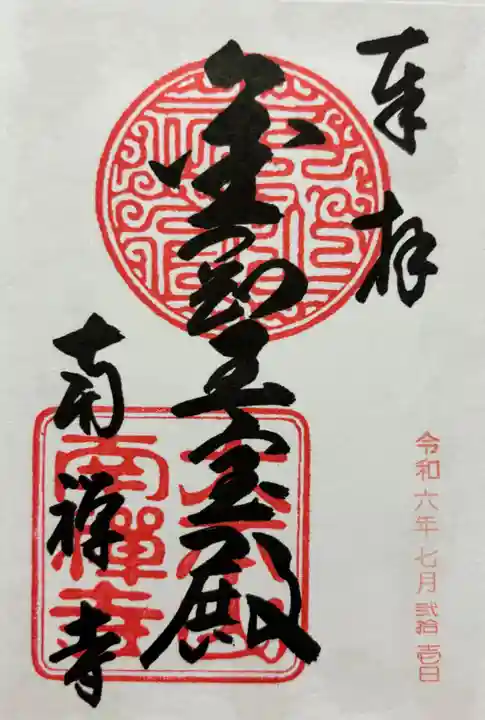 奉拝
令和六年七月弐拾壱日
金剛王宝殿
南禅寺